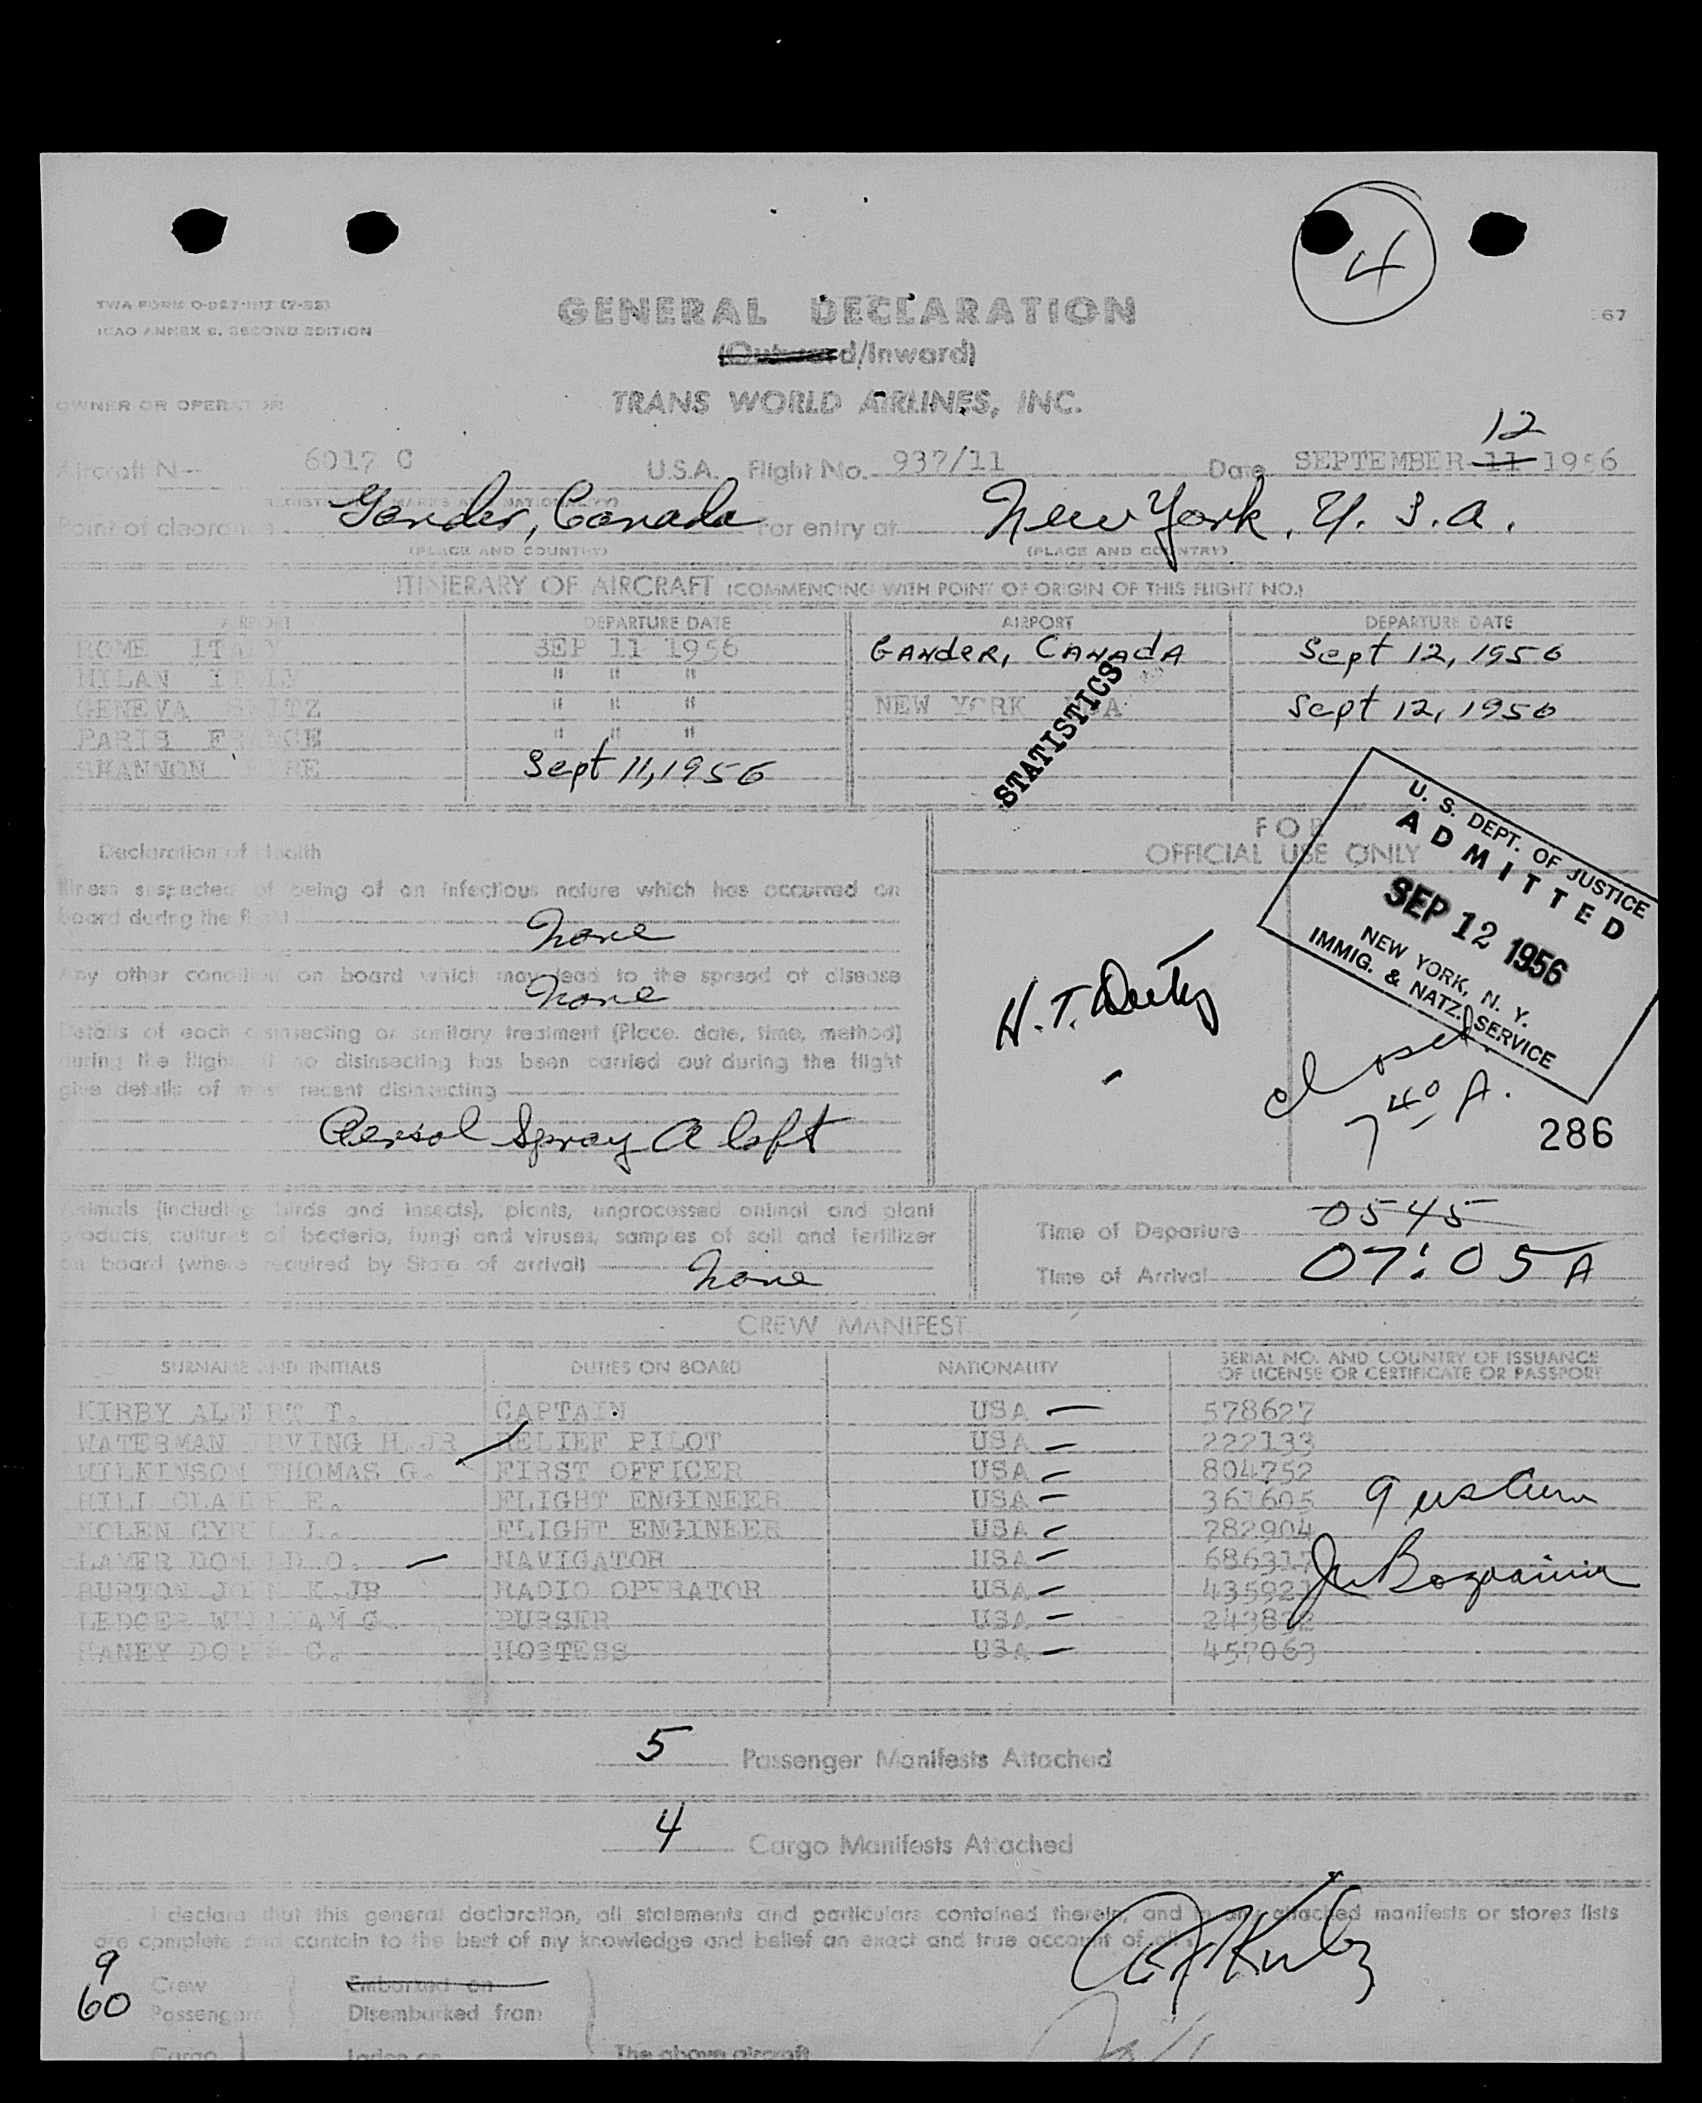 4
TWA FORM O-
ICAO ANNEX 9, SECOND EDITION
GENERAL DECLARATION
67
(Outward/Inward)
OWNER OR OPERATOR
TRANS WORLD AIRLINES, INC.
12
Aircraft N- 6017 C U.S.A. Flight No. 937/11 Date SEPTEMBER 11 1956
Point of clearance Gander, Canada For entry at New York, U.S.A.
(PLACE AND COUNTRY) (PLACE AND COUNTRY)
ITINERARY OF AIRCRAFT (COMMENCING WITH POINT OF ORIGIN OF THIS FLIGHT NO.)
AIRPORT DEPARTURE DATE AIRPORT DEPARTURE DATE
ROME ITALY SEP 11 1956 GANdeR, CANAdA Sept 12, 1956
MILAN ITALY " " "
GENEVA SWITZ " " " NEW YORK USA Sept 12, 1956
PARIS FRANCE " " "
SHANNON EIRE Sept 11, 1956
STATISTICS
Declaration of Health
FOR
OFFICIAL USE ONLY
U. S. DEPT. OF JUSTICE
ADMITTED
SEP 12 1956
NEW YORK, N. Y.
IMMIG. & NATZ. SERVICE
Illness suspected of being of an infectious nature which has occurred on
board during the flight
None
Any other condition on board which may lead to the spread of disease
None
H. T.
Details of each disinsecting or sanitary treatment (Place, date, time, method)
during the flight. If no disinsecting has been carried out during the flight
give details of most recent disinsecting
closed
7 40 A.
286
Aersol Spray Aloft
Animals (including birds and insects), plants, unprocessed animal and plant
products, cultures of bacteria, fungi and viruses, samples of soil and fertilizer
on board (where required by State of arrival) None
Time of Departure 0545
Time of Arrival 07:05 A
CREW MANIFEST
SURNAME AND INITIALS DUTIES ON BOARD NATIONALITY SERIAL NO. AND COUNTRY OF ISSUANCE
OF LICENSE OR CERTIFICATE OR PASSPORT
KIRBY ALBERT T. CAPTAIN USA 578627
WATERMAN IRVING H.JR RELIEF PILOT USA 222133
WILKINSON THOMAS G. FIRST OFFICER USA 804752
HILL CLAUDE E. FLIGHT ENGINEER USA 361605
NOLEN CYRIL J. FLIGHT ENGINEER USA 282904
LAVER DONALD O. NAVIGATOR USA 686317
BURTON JOHN K.JR RADIO OPERATOR USA 435921
LEDGER WILLIAM G. PURSER USA 243832
HANEY G. HOSTESS USA 457063
5 Passenger Manifests Attached
4 Cargo Manifests Attached
I declare that this general declaration, all statements and particulars contained therein, and in any attached manifests or stores lists
are complete and contain to the best of my knowledge and belief an exact and true account of all
A T Kirby
9 Crew Embarked on
60 Passengers Disembarked from
Cargo Laden on The above aircraft